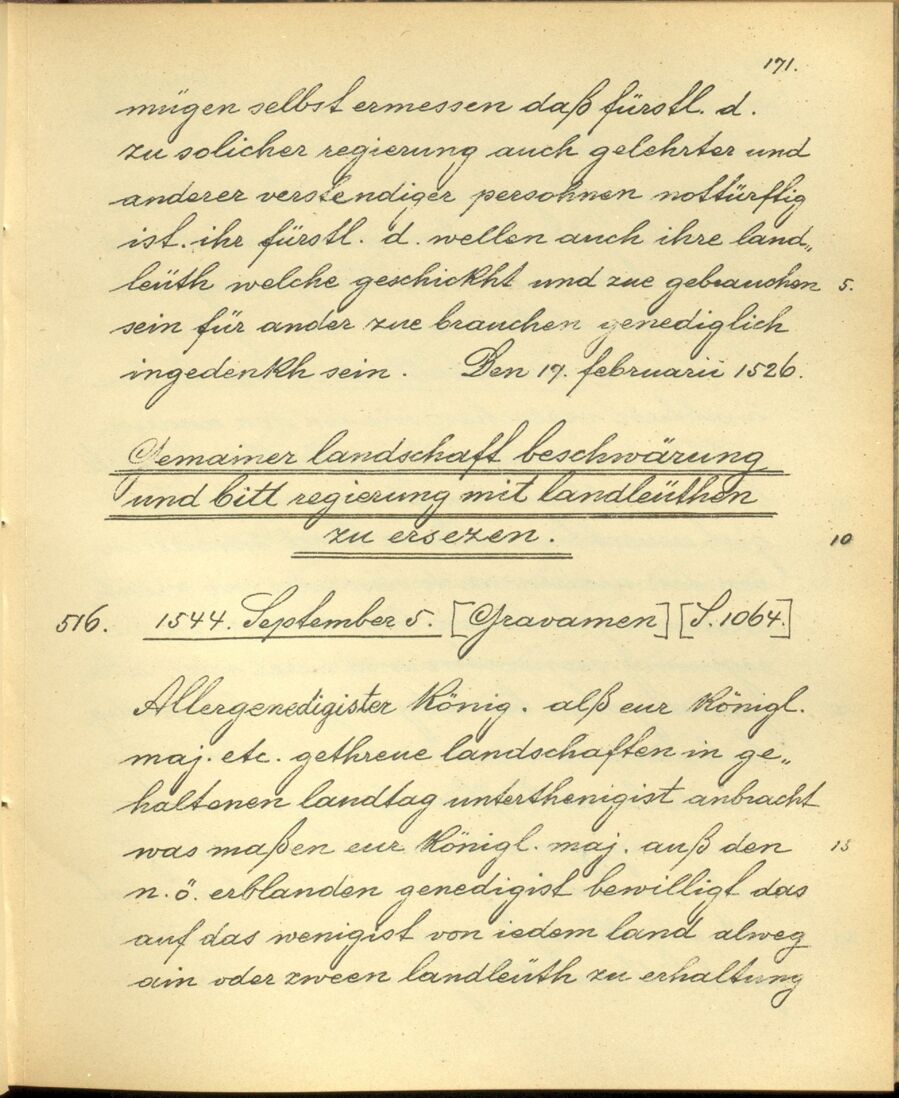 171.
mügen selbst ermessen daß fürstl. d.
zu solicher regierung auch gelehrter und
anderer verstendiger persohnen nottürftig
ist. ihr fürstl. d. wellen auch ihre land„
leüth welche geschickht und zue gebrauchen 5.
sein für ander zue brauchen genediglich
ingedenkh sein. Den 17. februarii 1526.
Gemainer landschaft beschwärung
und bitt regierung mit landleüthen
zu ersezen. 10
516. 1544. September 5. [Gravamen] [S. 1064.]
Allergenedigister König. alß eur Königl.
maj. etc. gethreue landschaften in ge„
haltenen landtag unterthenigist anbracht
was maßen eur Königl. maj. auß den 15
n. ö. erblanden genedigist bewilligt das
auf das wenigist von iedem land alweg
ain oder zween landleüth zu erhaltung